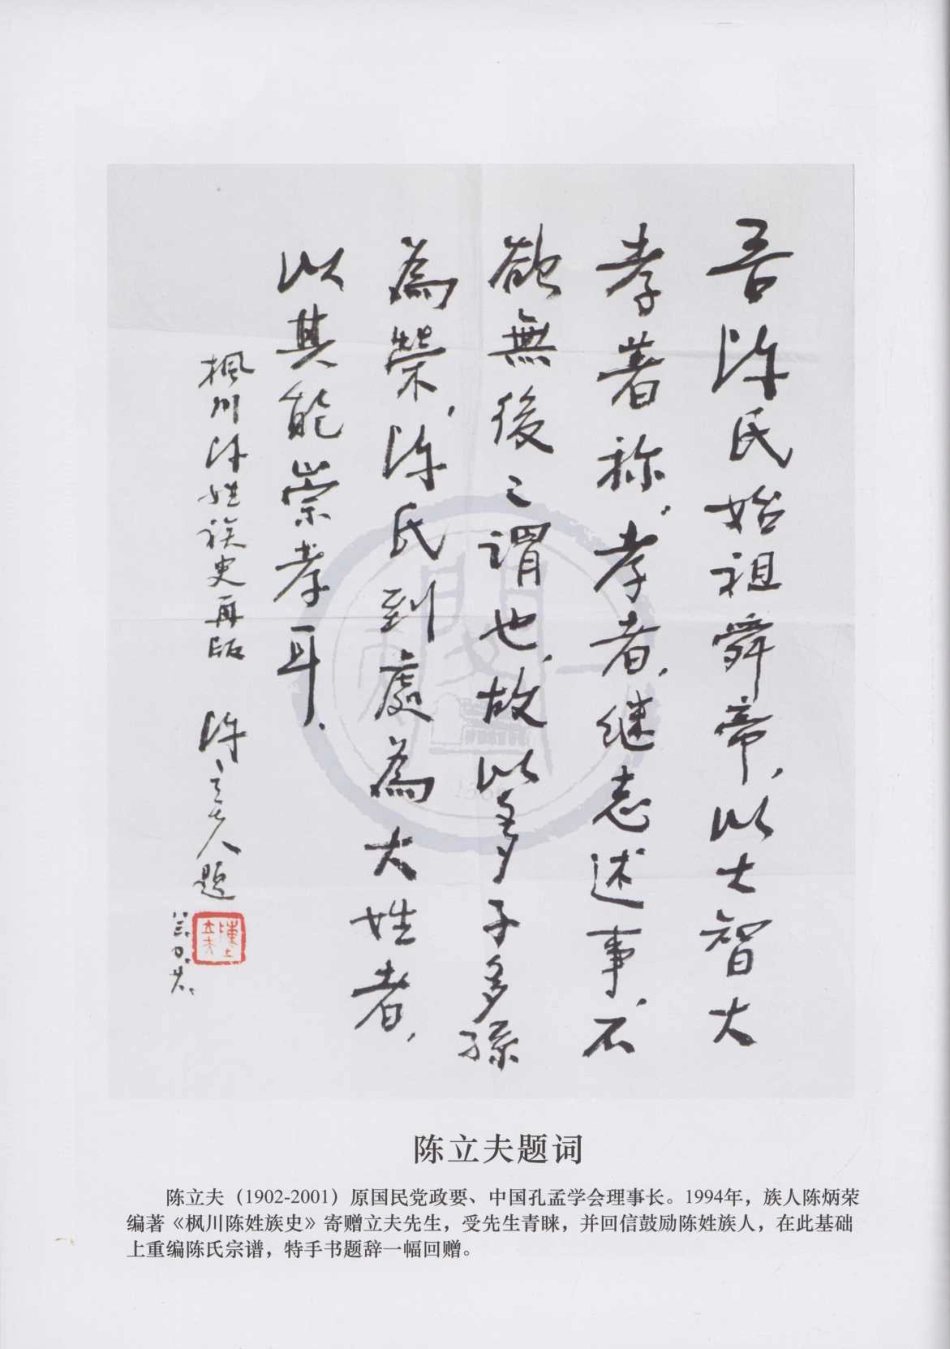 吾陳氏始祖舜帝,以大智大
孝著称,孝者,继志述事,不
欲無後之謂也,故以多子多孫
為榮,陳氏到處為大姓者,
以其能崇孝耳.
枫川陳姓族史再版
陳立夫題
陈立夫题词
陈立夫（1902-2001）原国民党政要、中国孔孟学会理事长。1994年，族人陈炳荣
编著《枫川陈姓族史》寄赠立夫先生，受先生青睐，并回信鼓励陈姓族人，在此基础
上重编陈氏宗谱，特手书题辞一幅回赠。